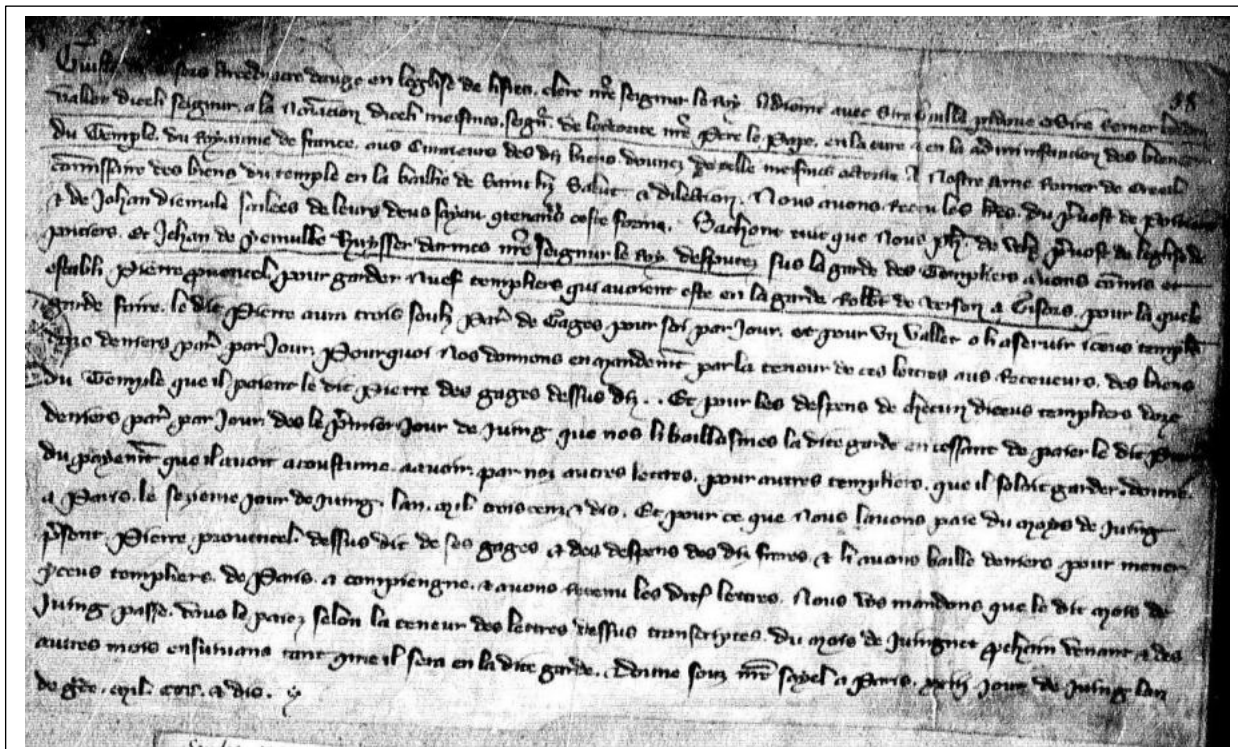 Guill de sors Arcediacre dauge en leglise de lisies. clerc nre seigneur le Roy. Adioint avec Sire Guille pidoue & Sire Remer bordon
38
vallez dicelli seigneur. a la Nomination dicelli meismes. seign. de lautorite nre Pere le Pape. en la cure & en la administracion des biens
du Temple. du Royaume de france. aus Curateurs des diz biens donnez de celle meismes actorite A Nostre Ame Romer de Creel
commissaire des biens du temple en la baillie de Saint liz Salut & dilection. Nous avons receu les lres. du prevost de Poitiers
& de Johan diemville seelees de leurs deus seyaus. contenanz ceste forme. Sachent tuit que Nous ph. de vohz prevost de leglise de
poitiers. Et Jehan de yemville huyssier darmes nre seigneur le Roy. desputez sus la garde des Templiers avons comis et
establi Pierre provencel. pour garder Nuef templiers qui avoient este en la garde Robert de verson a Gisors. pour la quele
garde faire. le dit Pierre aura trois souls Par. de Gages pour soi par Jour. et pour un vallet o li a servir iceus templiers
deniers par. par Jour. Pourquoi Nos donnons en mandement par la tenour de ces lettres aus Receveurs. des biens
du Temple que il paient le dit Pierre des gages dessus diz.. Et pour les despens de chacun diceus templiers doze
deniers par. par Jour. des le premier Jour de Juing que nos li baillasmes la dite garde en cessant de paier le dit Pierre
du payement que il avoit acoustume. a avoir. par noz autres lettres. pour autres templiers. que il soloit garder. donne.
a Paris. le sezieme Jour de Juing. lan. mil. trois cenz & dis. Et pour ce que Nous lavons paie du moys de Juing
present. Pierre. provencel. dessus dit de ses gages. & des despens des diz freres. & li avons baille deniers pour mener
yceus templiers. de Paris. a compiengne. & avons retenu les dites lettres. Nous vos mandons que le dit mois de
Juing passe. vous le paiez selon la teneur des lettres dessus transcriptes. du mois de Juingnet prochain venant & des
autres mois ensuivans tant que il sera en la dite garde. Donne souz nre seyel a Paris. xxiij Jour de Juing lan
de grace. mil. ccc. & dis.